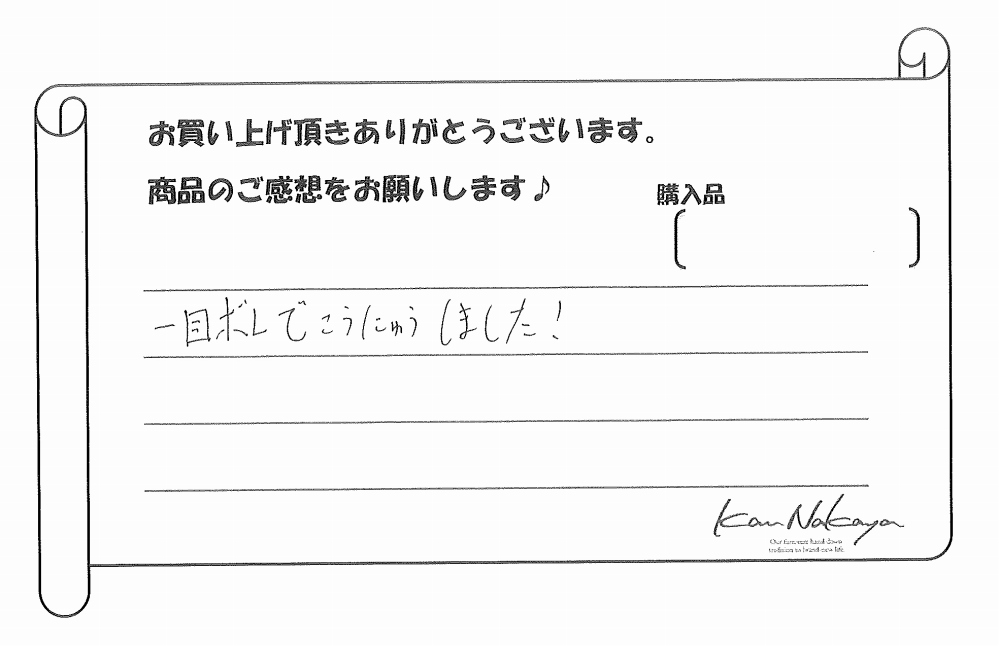 お買い上げ頂きありがとうございます。
商品のご感想をお願いします♪
購入品
一目ボレでこうにゅうしました!
Kan Nakaya
Our foremost hand down
tradision to brand-new life